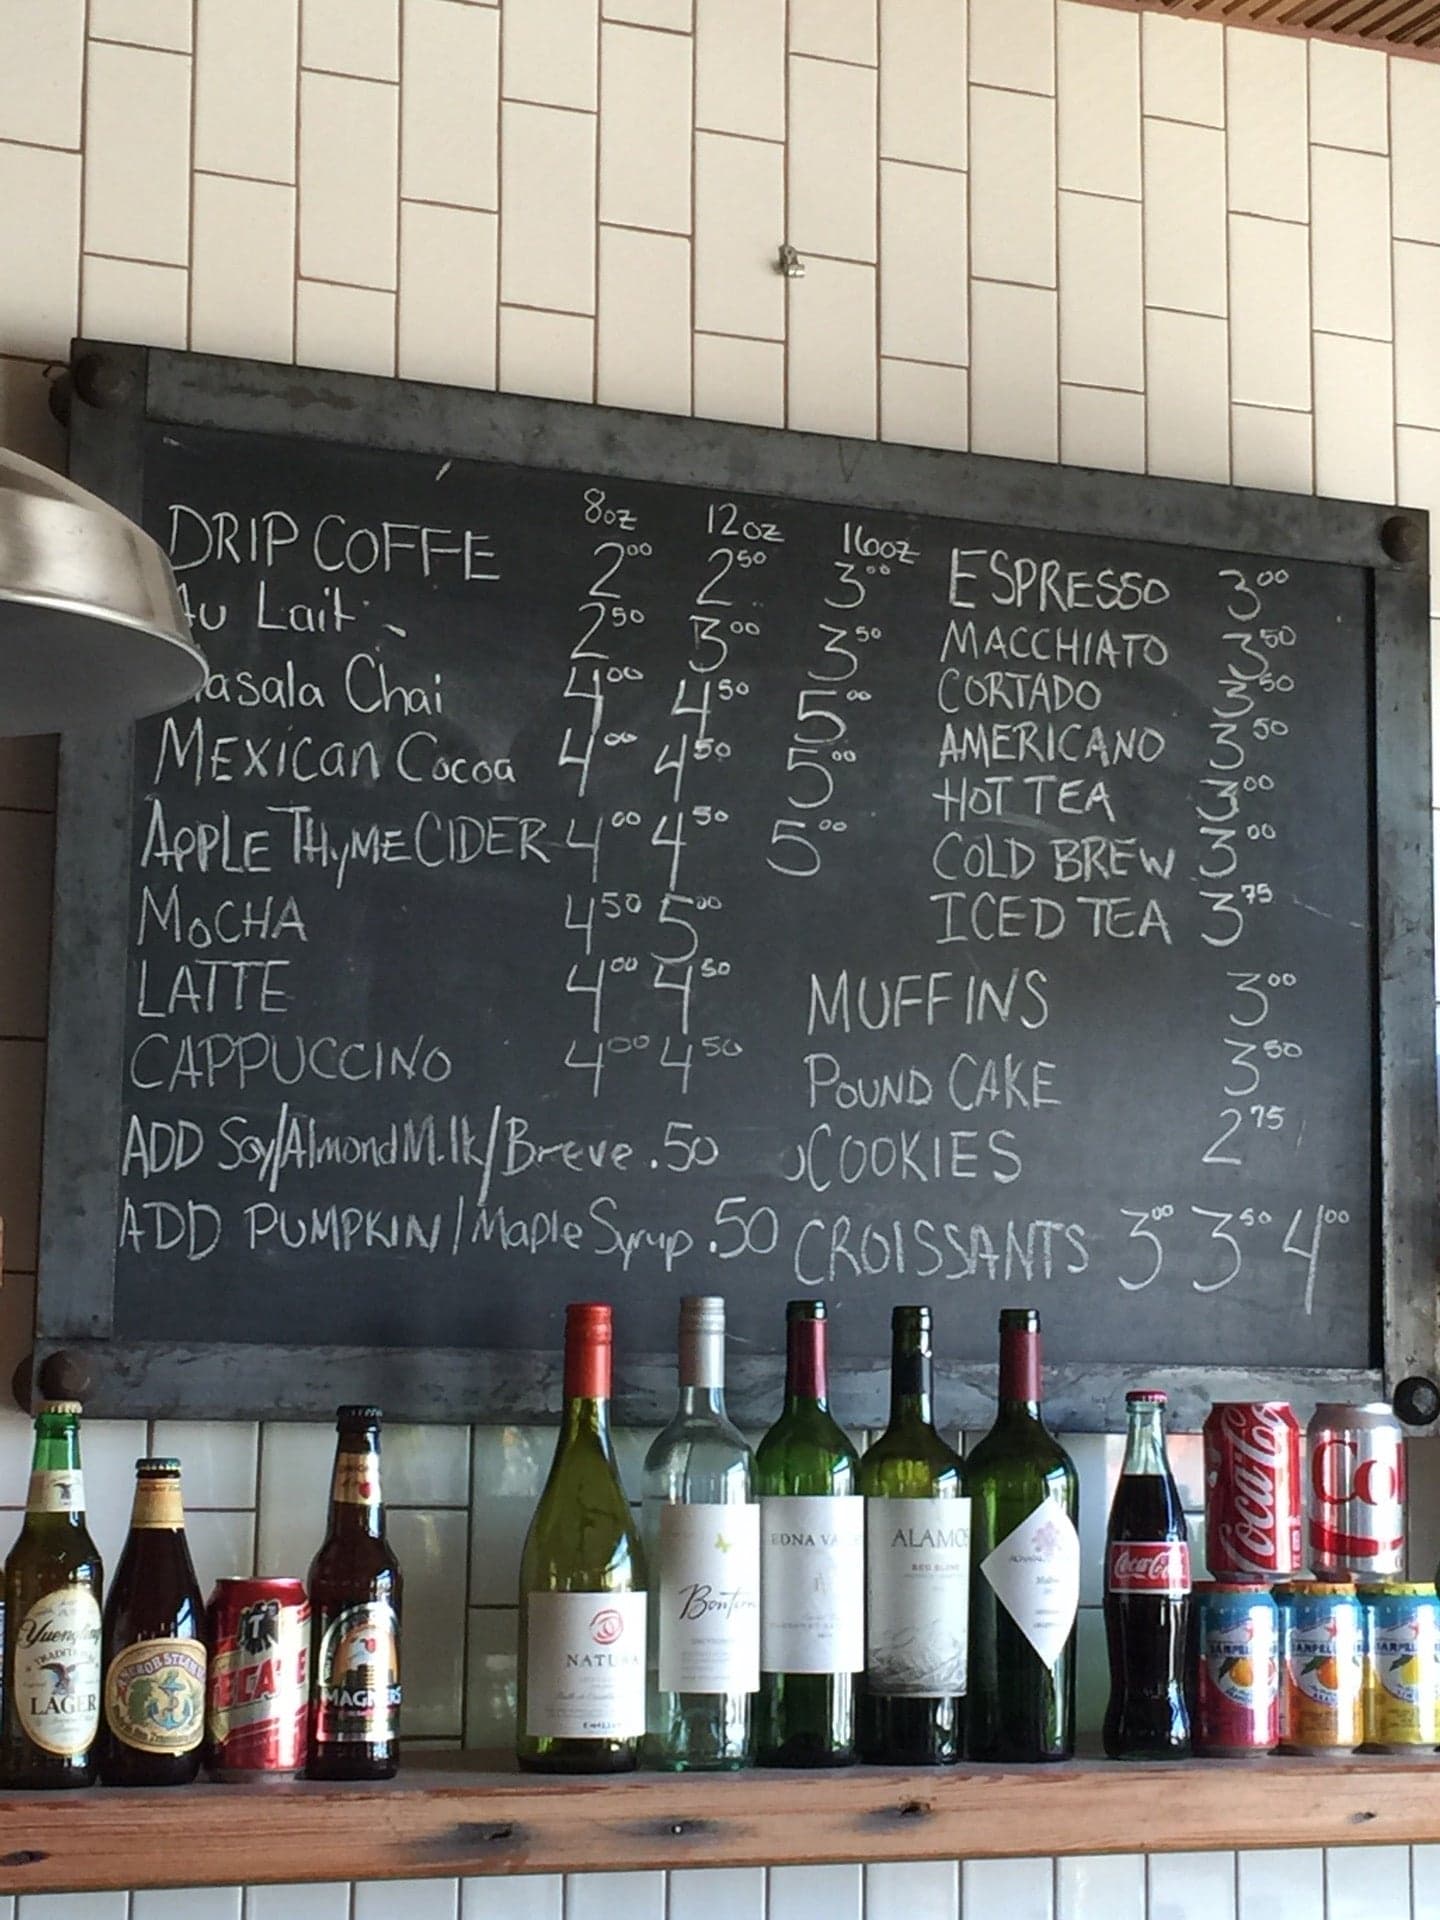 8oz 12oz 16oz
DRIP COFFE 2.00 2.50 3.00
Au Lait 2.50 3.00 3.50
asala Chai 4.00 4.50 5.00
MEXICan Cocoa 4.00 4.50 5.00
APPLE THyME CIDER 4.00 4.50 5.00
MoCHA 4.50 5.00
LATTE 4.00 4.50
CAPPUCCINO 4.00 4.50
ADD Soy/Almond Milk/Breve .50
ADD PUMPKIN/Maple Syrup .50
ESPRESSO 3.00
MACCHIATO 3.50
CORTADO 3.50
AMERICANO 3.50
HOT TEA 3.00
COLD BREW 3.00
ICED TEA 3.75
MUFFINS 3.00
POUND CAKE 3.50
COOKIES 2.75
CROISSANTS 3.00 3.50 4.00
Yuengling
TRADITIONAL
LAGER
ANCHOR STEAM
TECATE
MAGNERS
NATURA
Bonterra
EDNA VA
ALAMOS
RED BLEND
Coca-Cola
Coca-Cola
Co
SANPELL
SANPELL
SANPELL